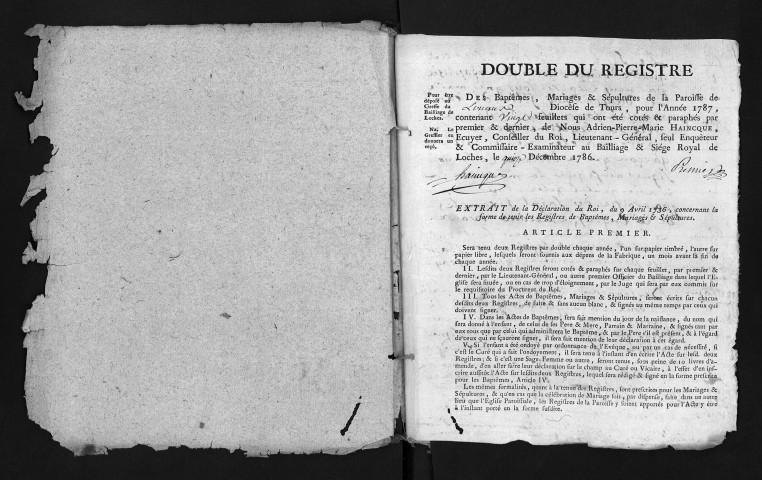 DOUBLE DU REGISTRE
Pour être
déposé au
Greffe du
Bailliage de
Loches.
Na. Le
Greffier en
donnera un
reçu.
DES Baptêmes, Mariages & Sépultures de la Paroisse de
Diocèse de Tours, pour l'Année 1787,
contenant Vingt feuillets qui ont été cotés & paraphés par
premier & dernier, de Nous Adrien-Pierre-Marie HAINCQUE,
Ecuyer, Conseiller du Roi, Lieutenant-Général, seul Enquêteur
& Commissaire-Examinateur au Bailliage & Siége Royal de
Loches, le Décembre 1786.
haincque Premier
EXTRAIT de la Déclaration du Roi, du 9 Avril 1736, concernant la
forme de tenir les Registres de Baptêmes, Mariages & Sépultures.
ARTICLE PREMIER.
Sera tenu deux Registres par double chaque année, l'un sur papier timbré, l'autre sur
papier libre, lesquels seront fournis aux dépens de la Fabrique, un mois avant la fin de
chaque année.
II. Lesdits deux Registres seront cotés & paraphés sur chaque feuillet, par premier &
dernier, par le Lieutenant-Général, ou autre premier Officier du Bailliage dans lequel l'E-
glise sera située, ou en cas de trop d'éloignement, par le Juge qui sera par eux commis sur
le requisitoire du Procureur du Roi.
III. Tous les Actes de Baptêmes, Mariages & Sépultures, seront écrits sur chacun
desdits deux Registres, de suite & sans aucun blanc, & signés au même temps par ceux qui
doivent signer.
IV. Dans les Actes de Baptêmes, sera fait mention du jour de la naissance, du nom qui
sera donné à l'enfant, de celui de ses Pere & Mere, Parrain & Marraine, & signés tant par
eux tous que par celui qui administrera le Baptême, & par le Pere s'il est présent, & à l'égard
de ceux qui ne sçauront signer, il sera fait mention de leur déclaration à cet égard.
V. Si l'enfant a été ondoyé par ordonnance de l'Evêque, ou par un cas de nécessité, si
c'est le Curé qui a fait l'ondoyement, il sera tenu à l'instant d'en écrire l'Acte sur lesd. deux
Registres; & si c'est une Sage-Femme ou autre, seront tenus, sous peine de 10 livres d'a-
mende, d'en aller faire leur déclaration sur le champ au Curé ou Vicaire, à l'effet d'en ins-
crire aussitôt l'Acte sur lesdits deux Registres, lequel sera rédigé & signé en la forme prescrite
pour les Baptêmes, Article IV.
Les mêmes formalités, quant à la tenue des Registres, sont prescrites pour les Mariages &
Sépultures, & qu'en cas que la célébration de Mariage soit, par dispense, faite dans un autre
lieu que l'Eglise Paroissiale, les Registres de la Paroisse y soient apportés pour l'Acte y être
à l'instant porté en la forme susdite.